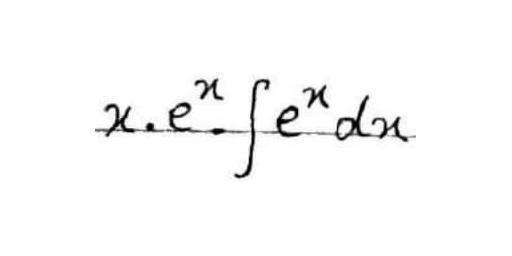 x.e^x.∫e^x dx